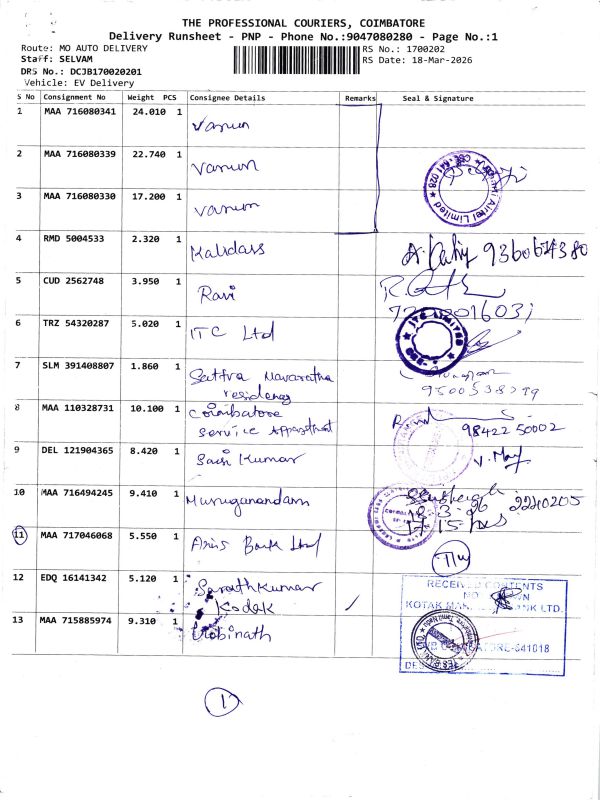 THE PROFESSIONAL COURIERS, COIMBATORE
Delivery Runsheet - PNP - Phone No.:9047080280 - Page No.:1
Route: MO AUTO DELIVERY RS No.: 1700202
Staff: SELVAM RS Date: 18-Mar-2026
DRS No.: DCJB170020201
Vehicle: EV Delivery
S No Consignment No Weight PCS Consignee Details Remarks Seal & Signature
1 MAA 716080341 24.010 1 Varun
2 MAA 716080339 22.740 1 Varun
3 MAA 716080330 17.200 1 Varun
Airtel Limited
4 RMD 5004533 2.320 1 Kalidass
5 CUD 2562748 3.950 1 Ravi
6 TRZ 54320287 5.020 1 ITC Ltd
ITC LIMITED
7 SLM 391408807 1.860 1 Sattva Navaratna
residency
8 MAA 110328731 10.100 1 Coimbatore
Service
98422 50002
9 DEL 121904365 8.420 1 Kumar
10 MAA 716494245 9.410 1 Muruganandam
2240205
11 MAA 717046068 5.550 1 Axis Bank Ltd
12 EDQ 16141342 5.120 1 Sarathkumar
Kotak
RECEIVED CONTENTS
KOTAK BANK LTD.
13 MAA 715885974 9.310 1 Gobinath
641018
1